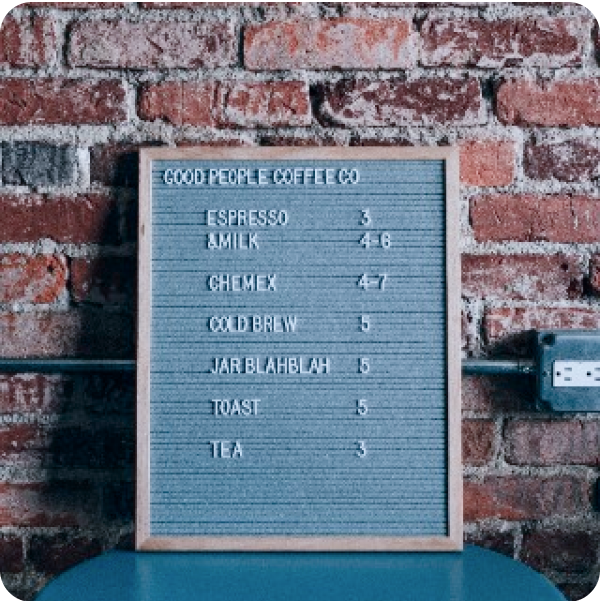 GOOD PEOPLE COFFEE CO
ESPRESSO 3
&MILK 4-6
CHEMEX 4-7
COLD BREW 5
JAR BLAHBLAH 5
TOAST 5
TEA 3